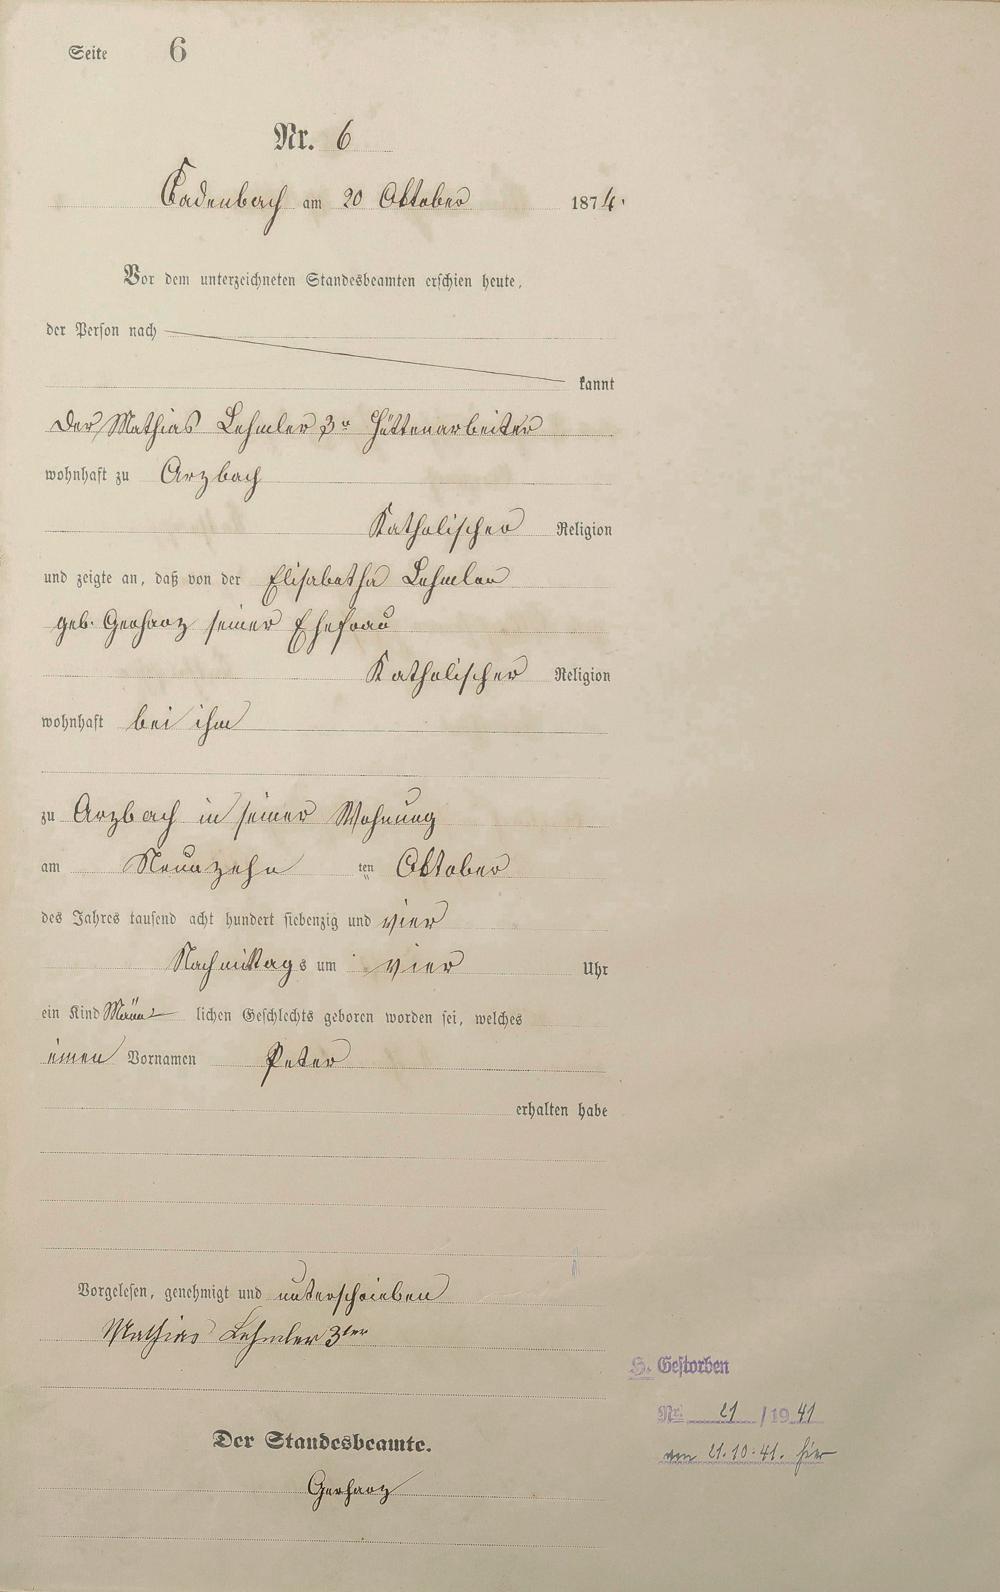 Seite 6
Nr. 6
Cadenbach am 20 Oktober 1874.
Vor dem unterzeichneten Standesbeamten erschien heute,
der Person nach
kannt
der Mathias Lehmler 3r Hüttenarbeiter
wohnhaft zu Arzbach
Katholischer Religion
und zeigte an, daß von der Elisabetha Lehmler
geb. Gerharz seiner Ehefrau
Katholischer Religion
wohnhaft bei ihm
zu Arzbach in seiner Wohnung
am Neunzehn ten Oktober
des Jahres tausend acht hundert siebenzig und vier
Nachmittags um vier Uhr
ein Kind Männ lichen Geschlechts geboren worden sei, welches
einen Vornamen Peter
erhalten habe
Vorgelesen, genehmigt und unterschrieben
Mathias Lehmler 3ter
Der Standesbeamte.
Gerharz
H. Gestorben
Nr. 21 /1941
vom 21.10.41. hier